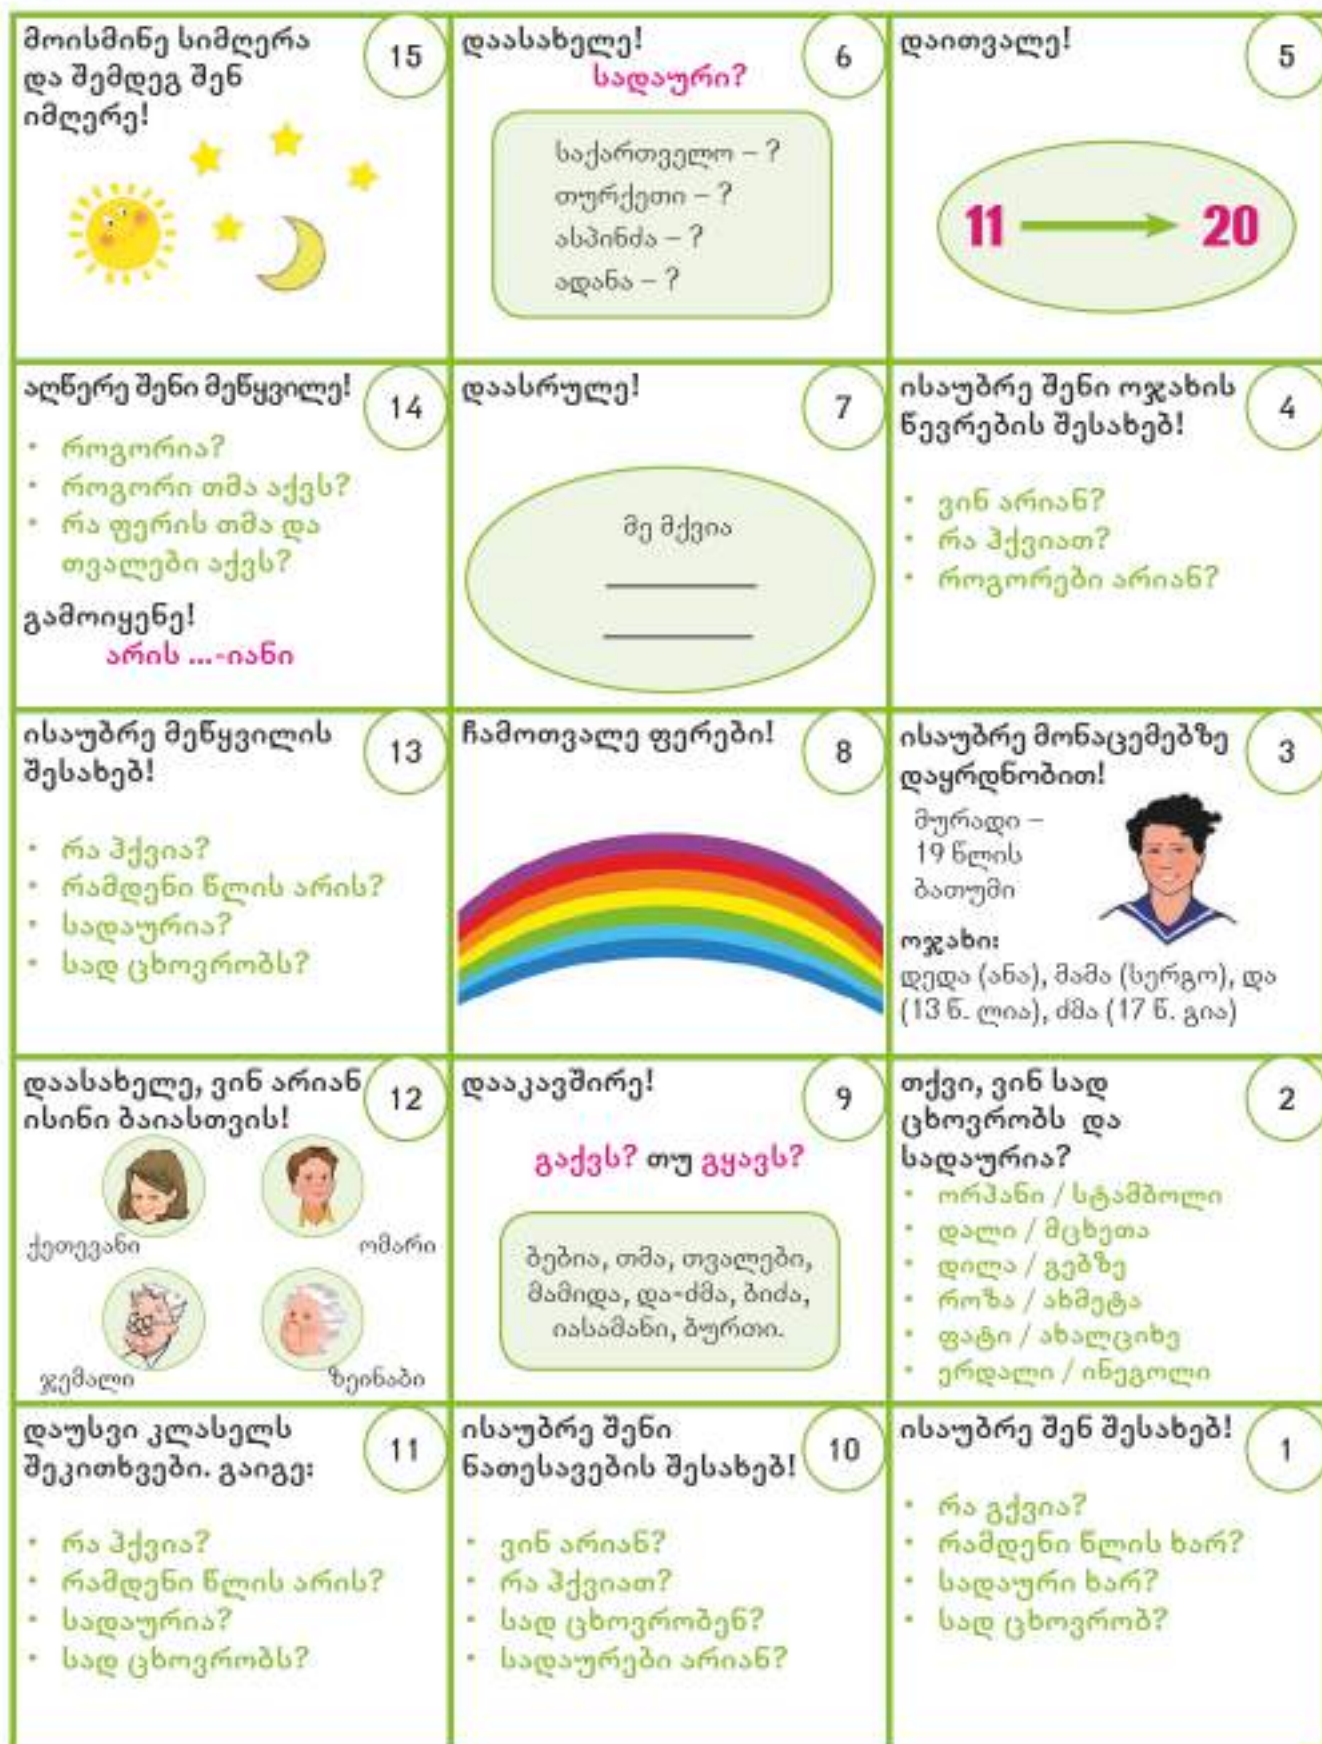 მოისმინე სიმღერა
და შემდეგ შენ
იმღერე!
15
დაასახელე!
სადაური?
6
საქართველო – ?
თურქეთი – ?
ასპინძა – ?
ადანა – ?
დაითვალე!
5
11
20
აღწერე შენი მეწყვილე!
14
• როგორია?
• როგორი თმა აქვს?
• რა ფერის თმა და
თვალები აქვს?
გამოიყენე!
არის ...-იანი
დაასრულე!
7
მე მქვია
ისაუბრე შენი ოჯახის
წევრების შესახებ!
4
• ვინ არიან?
• რა ჰქვიათ?
• როგორები არიან?
ისაუბრე მეწყვილის
შესახებ!
13
• რა ჰქვია?
• რამდენი წლის არის?
• სადაურია?
• სად ცხოვრობს?
ჩამოთვალე ფერები!
8
ისაუბრე მონაცემებზე
დაყრდნობით!
3
მურადი –
19 წლის
ბათუმი
ოჯახი:
დედა (ანა), მამა (სერგო), და
(13 წ. ლია), ძმა (17 წ. გია)
დაასახელე, ვინ არიან
ისინი ბაიასთვის!
12
ქეთევანი
ომარი
ჯემალი
ზეინაბი
დააკავშირე!
9
გაქვს? თუ გყავს?
ბებია, თმა, თვალები,
მამიდა, და-ძმა, ბიძა,
იასამანი, ბურთი.
თქვი, ვინ სად
ცხოვრობს და
სადაურია?
2
• ორჰანი / სტამბოლი
• დალი / მცხეთა
• დილა / გებზე
• როზა / ახმეტა
• ფატი / ახალციხე
• ერდალი / ინეგოლი
დაუსვი კლასელს
შეკითხვები. გაიგე:
11
• რა ჰქვია?
• რამდენი წლის არის?
• სადაურია?
• სად ცხოვრობს?
ისაუბრე შენი
ნათესავების შესახებ!
10
• ვინ არიან?
• რა ჰქვიათ?
• სად ცხოვრობენ?
• სადაურები არიან?
ისაუბრე შენ შესახებ!
1
• რა გქვია?
• რამდენი წლის ხარ?
• სადაური ხარ?
• სად ცხოვრობ?